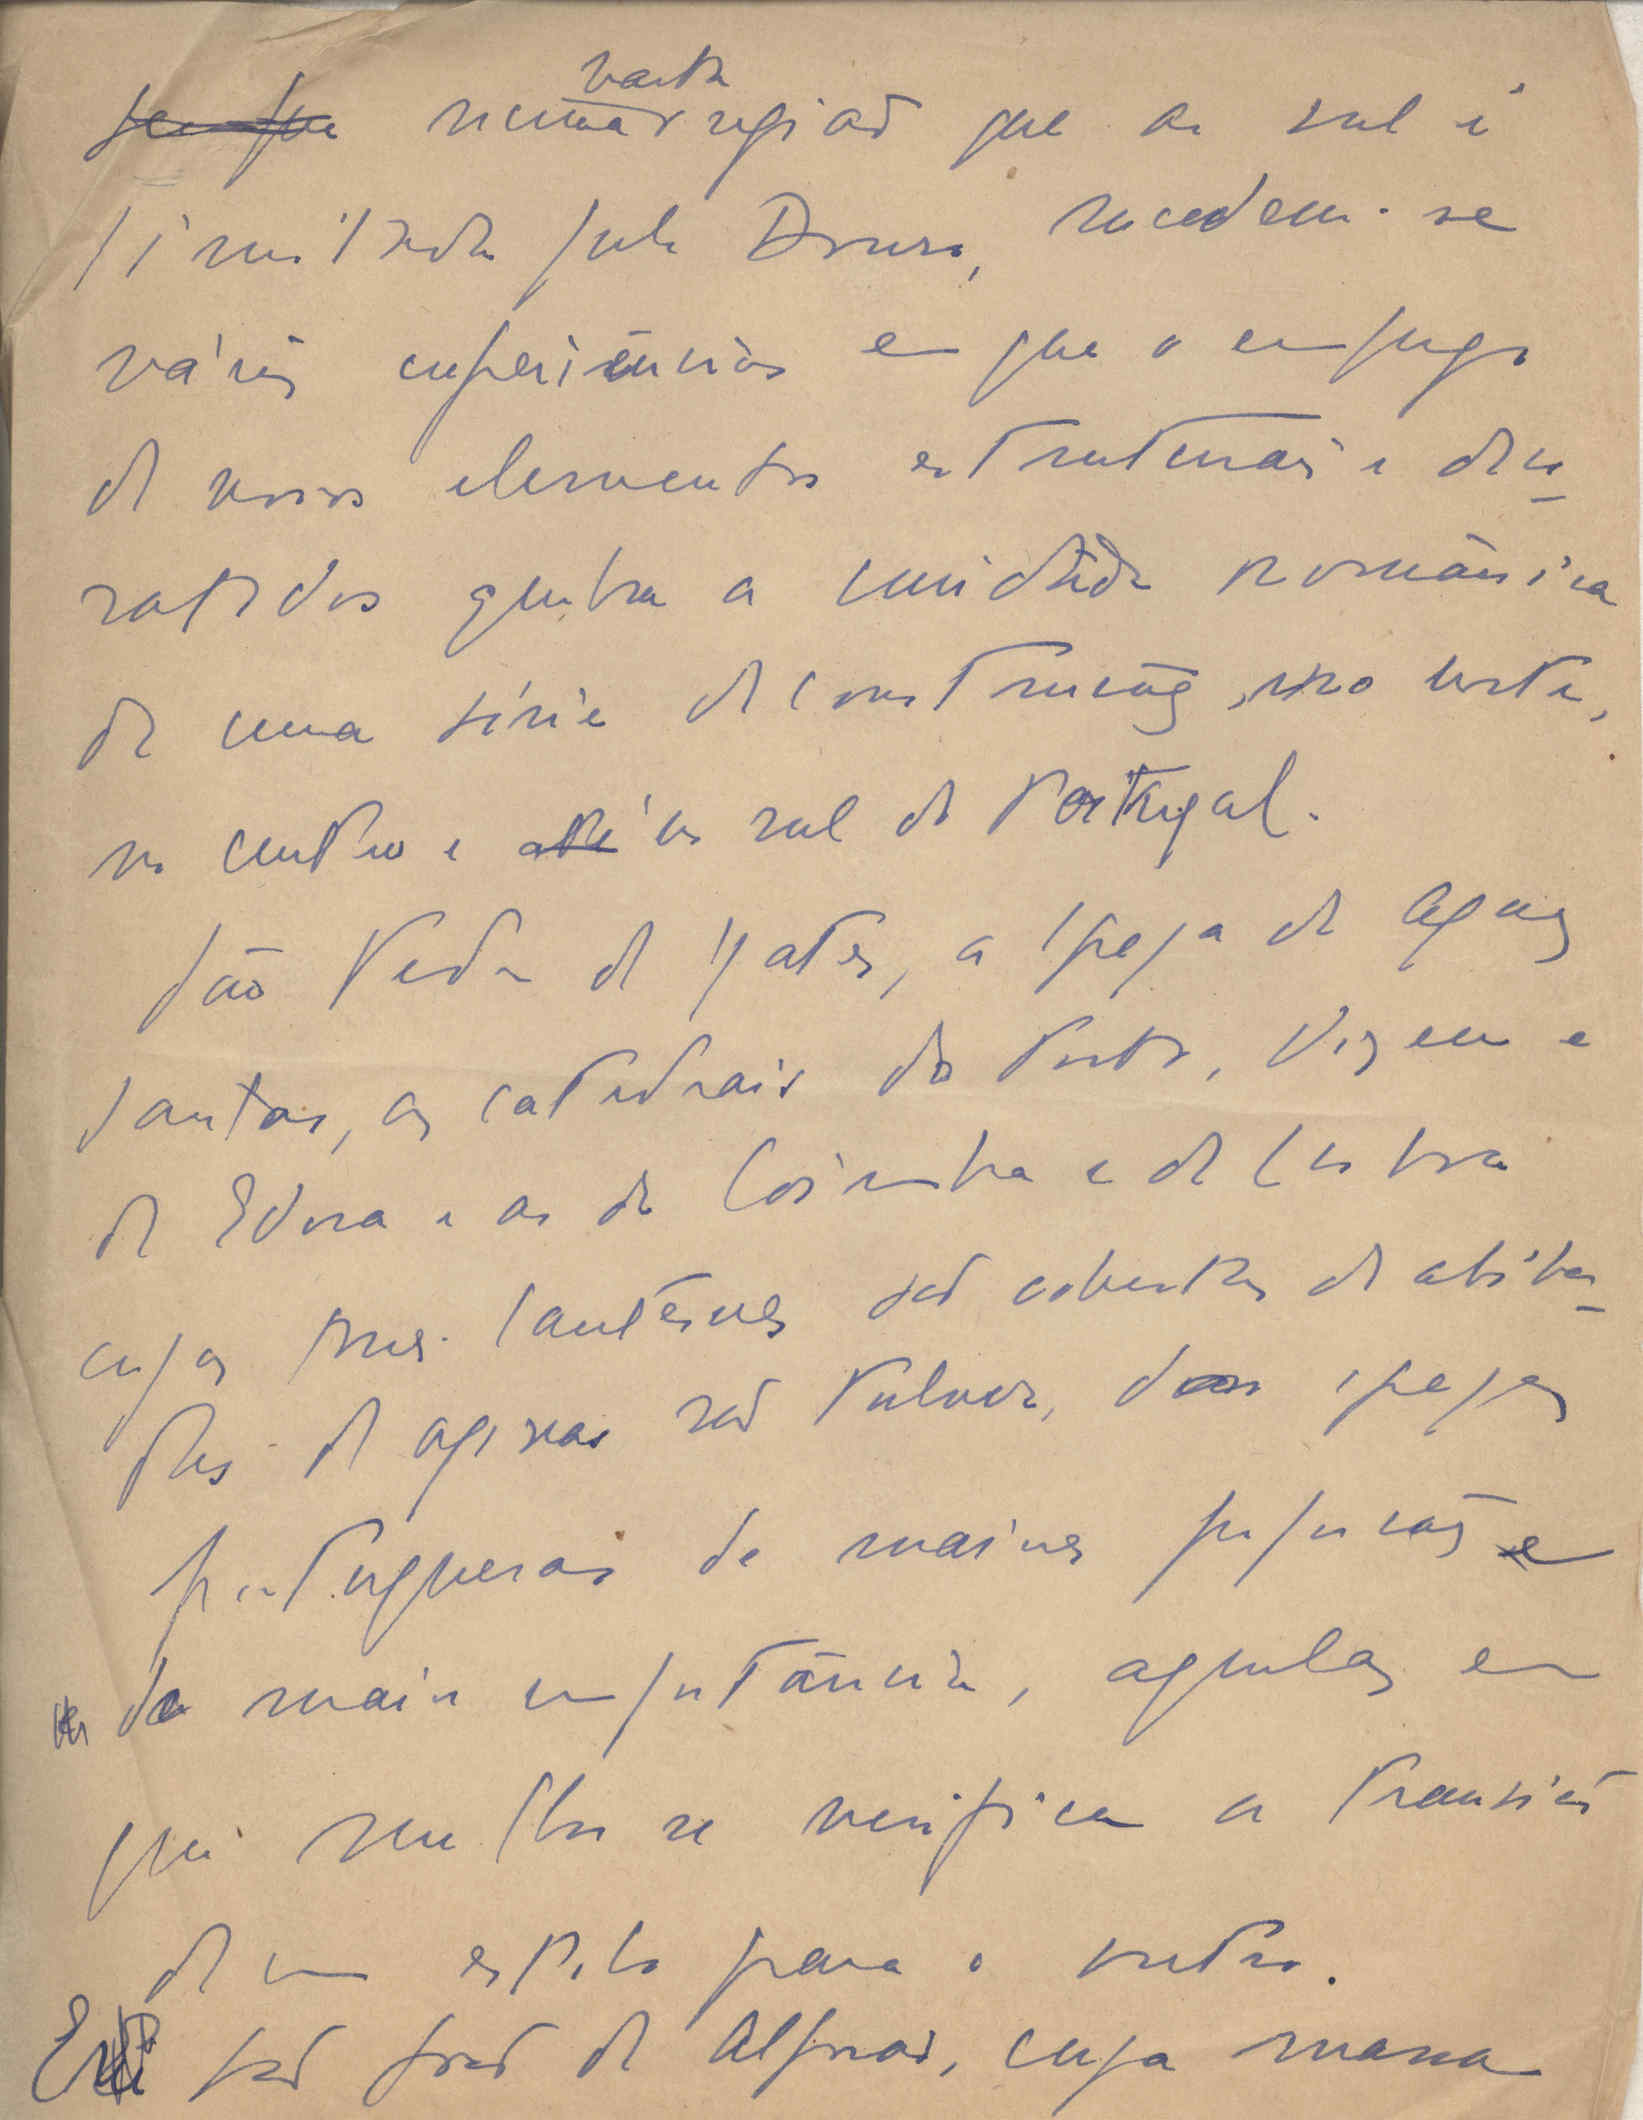 vasta
sempre numa região que ao sul é
limitada pelo Douro, sucedem-se
várias experiências em que o emprego
de novos elementos estruturais e deco-
rativos quebra a unidade românica
de uma série de construções, no norte,
no centro e até no sul de Portugal.
São Pedro de Rates, a igreja de Águas
Santas, as catedrais do Porto, Viseu e
de Évora e as de Coimbra e de Lisboa
cujas torres lanternas são cobertas de abóba-
das de ogivas são talvez, das igrejas
portuguesas de maiores proporções e
de maior importância, aquelas em
que melhor se verifica a transição
de um estilo para o outro.
São João de Alporão, cuja massa